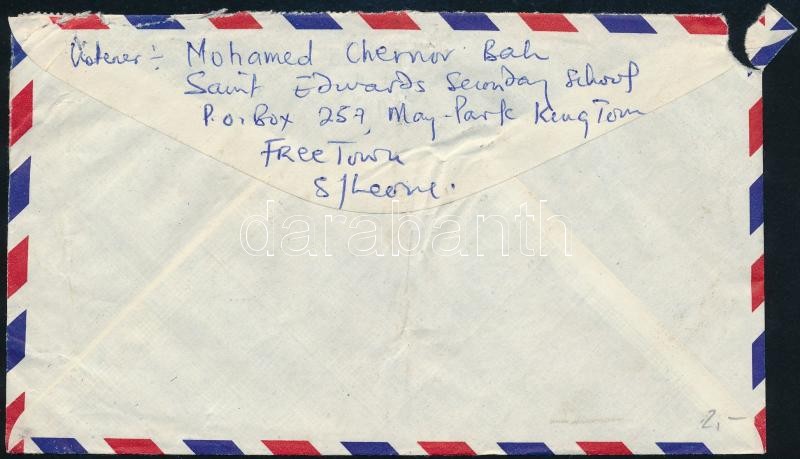 Listener :- Mohamed Chernor Bah
Saint Edwards Secondary School
P.O. Box 257, May-Park King Tom
FreeTown
S/Leone.
darabanth
2,-